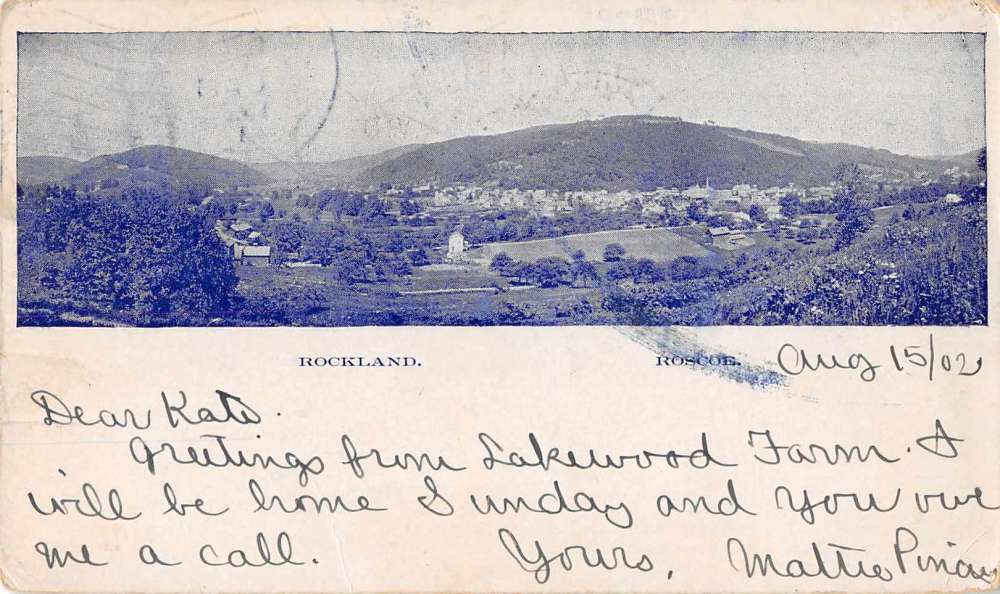 ROCKLAND. ROSCOE. Aug 15/02
Dear Kate.
Greetings from Lakewood Farm. I
will be home Sunday and you owe
me a call. Yours, Mattie